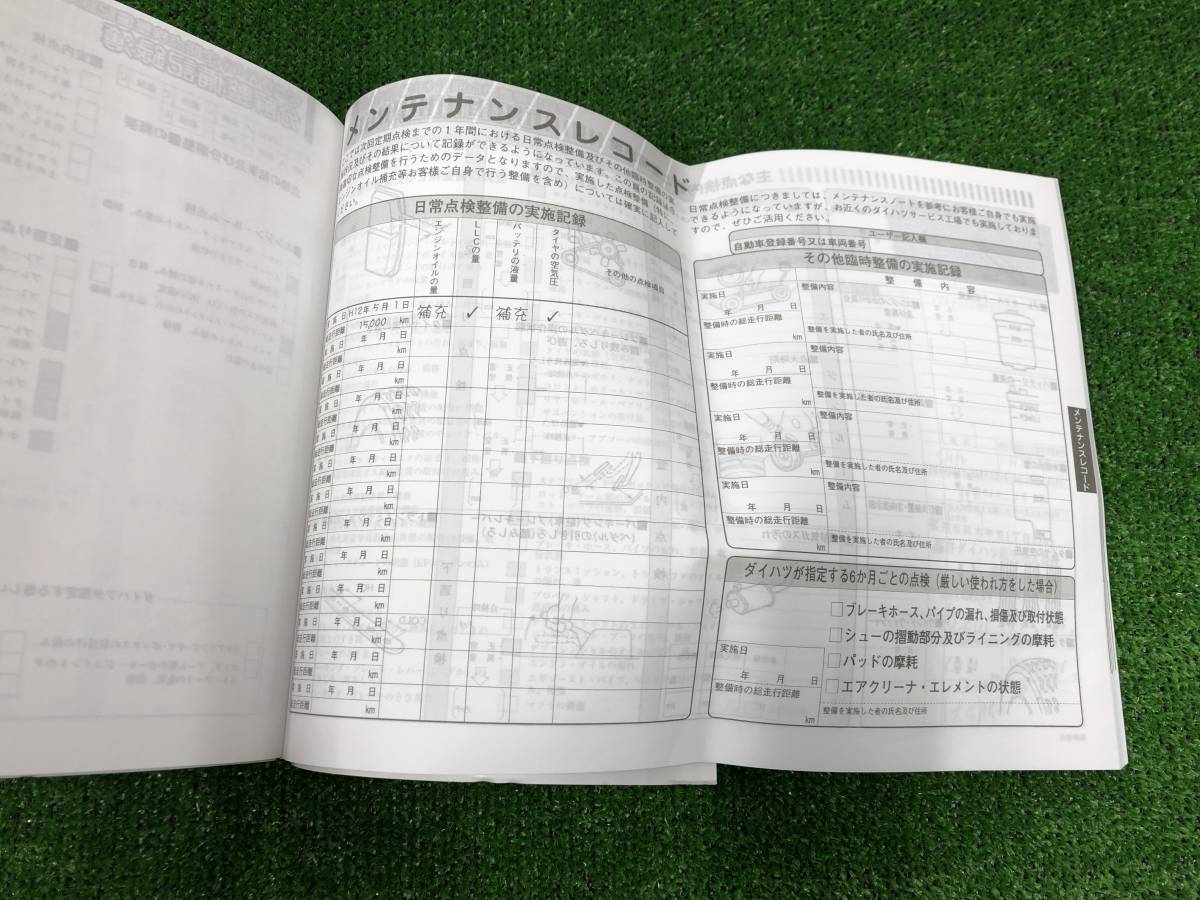 メンテナンスレコード
ここでは次回定期点検までの1年間における日常点検整備及びその他臨時整備の実
及びその結果について記録ができるようになっています。この頁の記録は、
適切な点検整備を行うためのデータとなりますので、実施した点検整備(特に
エンジンオイル補充等お客様ご自身で行う整備を含め)については確実に記入して
ください。
日常点検整備の実施記録
エンジンオイルの量
LLCの量
バッテリの液量
タイヤの空気圧
その他の点検項目
実施日 H12年5月1日 補充 ✓ 補充 ✓
総走行距離 15,000 km
実施日 年 月 日
総走行距離 km
実施日 年 月 日
総走行距離 km
実施日 年 月 日
総走行距離 km
実施日 年 月 日
総走行距離 km
実施日 年 月 日
総走行距離 km
実施日 年 月 日
総走行距離 km
実施日 年 月 日
総走行距離 km
実施日 年 月 日
総走行距離 km
実施日 年 月 日
総走行距離 km
実施日 年 月 日
総走行距離 km
実施日 年 月 日
総走行距離 km
実施日 年 月 日
総走行距離 km
日常点検整備につきましては、メンテナンスノートを参考にお客様ご自身でも実施
できるようになっていますが、お近くのダイハツサービス工場でも実施しておりま
すので、ぜひご活用ください。
ユーザー記入欄
自動車登録番号又は車両番号
その他臨時整備の実施記録
整備内容
実施日 整備内容
年 月 日
整備時の総走行距離 整備を実施した者の氏名及び住所
km
実施日 整備内容
年 月 日
整備時の総走行距離
km 整備を実施した者の氏名及び住所
実施日 整備内容
年 月 日
整備時の総走行距離
km 整備を実施した者の氏名及び住所
実施日 整備内容
年 月 日
整備時の総走行距離
km 整備を実施した者の氏名及び住所
ダイハツが指定する6か月ごとの点検(厳しい使われ方をした場合)
□ブレーキホース、パイプの漏れ、損傷及び取付状態
□シューの摺動部分及びライニングの摩耗
□パッドの摩耗
□エアクリーナ・エレメントの状態
実施日
年 月 日
整備時の総走行距離
km
整備を実施した者の氏名及び住所
メンテナンスレコード